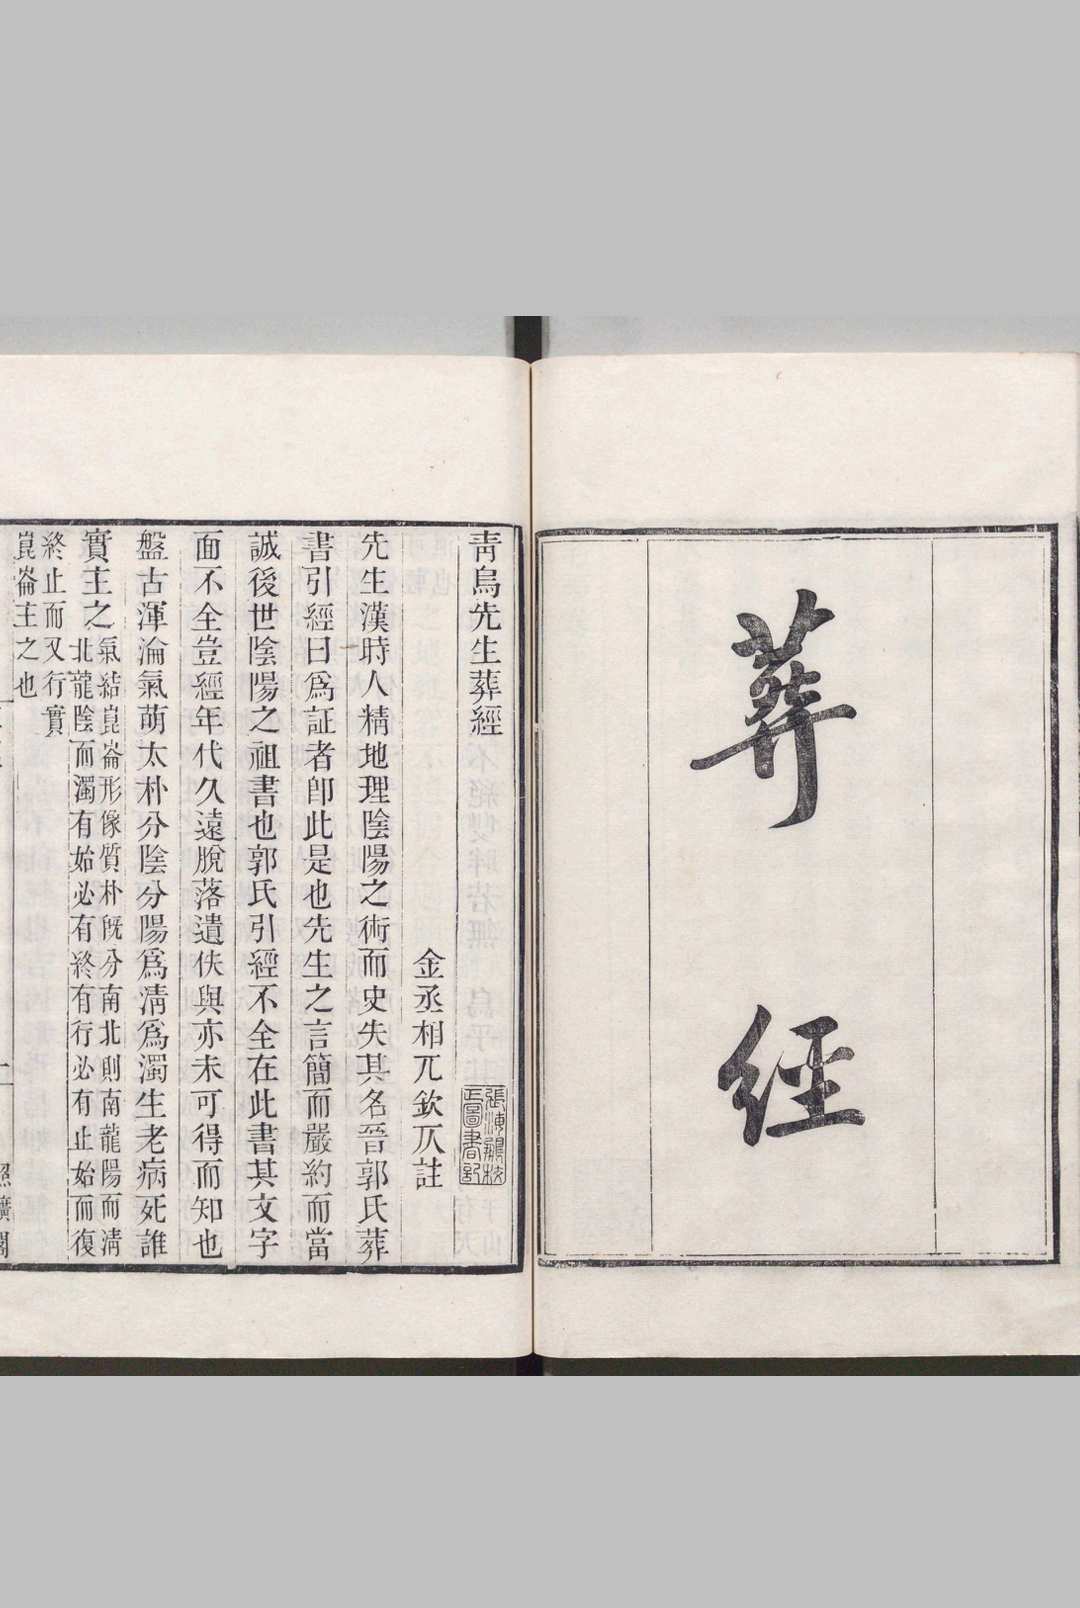 葬經
青烏先生葬經
金丞相兀欽仄註
先生漢時人精地理陰陽之術而史失其名晉郭氏葬
書引經曰爲証者卽此是也先生之言簡而嚴約而當
誠後世陰陽之祖書也郭氏引經不全在此書其文字
面不全豈經年代久遠脫落遺佚與亦未可得而知也
盤古渾淪氣萌太朴分陰分陽爲淸爲濁生老病死誰
實主之
氣結崑崙形像質朴旣分南北則南龍陽而淸
北龍陰而濁有始必有終有行必有止始而復
終止而又行實
崑崙主之也
照曠閣